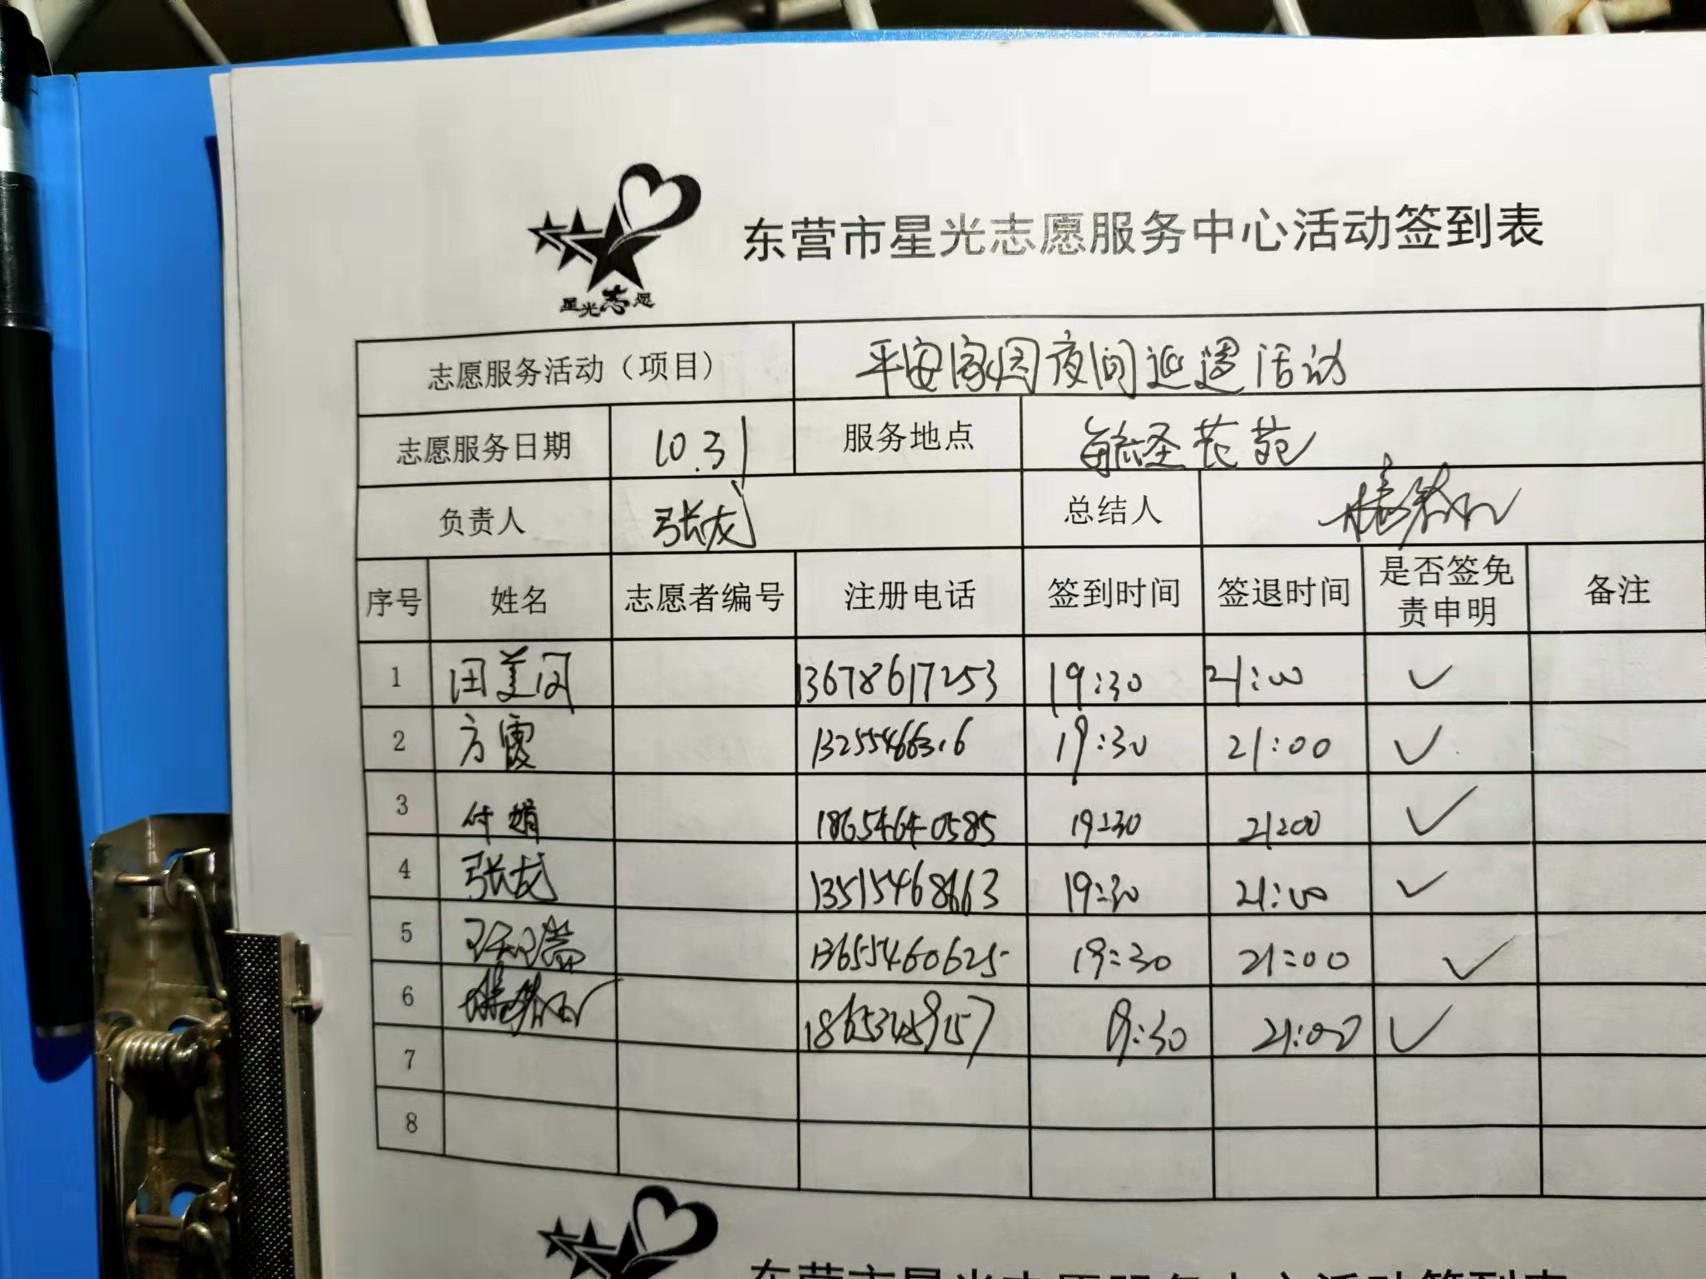 星光志愿
东营市星光志愿服务中心活动签到表
志愿服务活动（项目） 平安家园夜间巡逻活动
志愿服务日期 10.31 服务地点 苑
负责人 张龙 总结人
序号 姓名 志愿者编号 注册电话 签到时间 签退时间 是否签免责申明 备注
1 田美闵 13678617253 19:30 21:00 ✓
2 方霞 19:30 21:00 ✓
3 付娟 18654640585 19:30 21:00 ✓
4 张龙 13515468663 19:30 21:00 ✓
5 13655460625 19:30 21:00 ✓
6 19:30 21:00 ✓
7
8
东营市星光志愿服务中心活动签到表